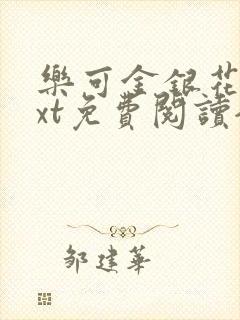 樂可金銀花
xt免費閱讀
鄒建華